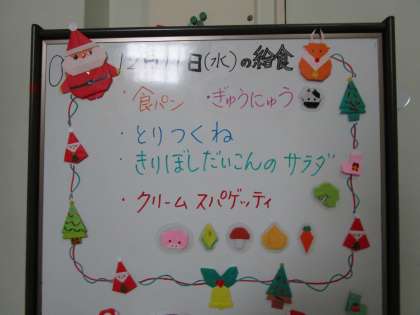 12月11日(水)の給食
・食パン ・ぎゅうにゅう
・とりつくね
・きりぼしだいこんのサラダ
・クリームスパゲッティ